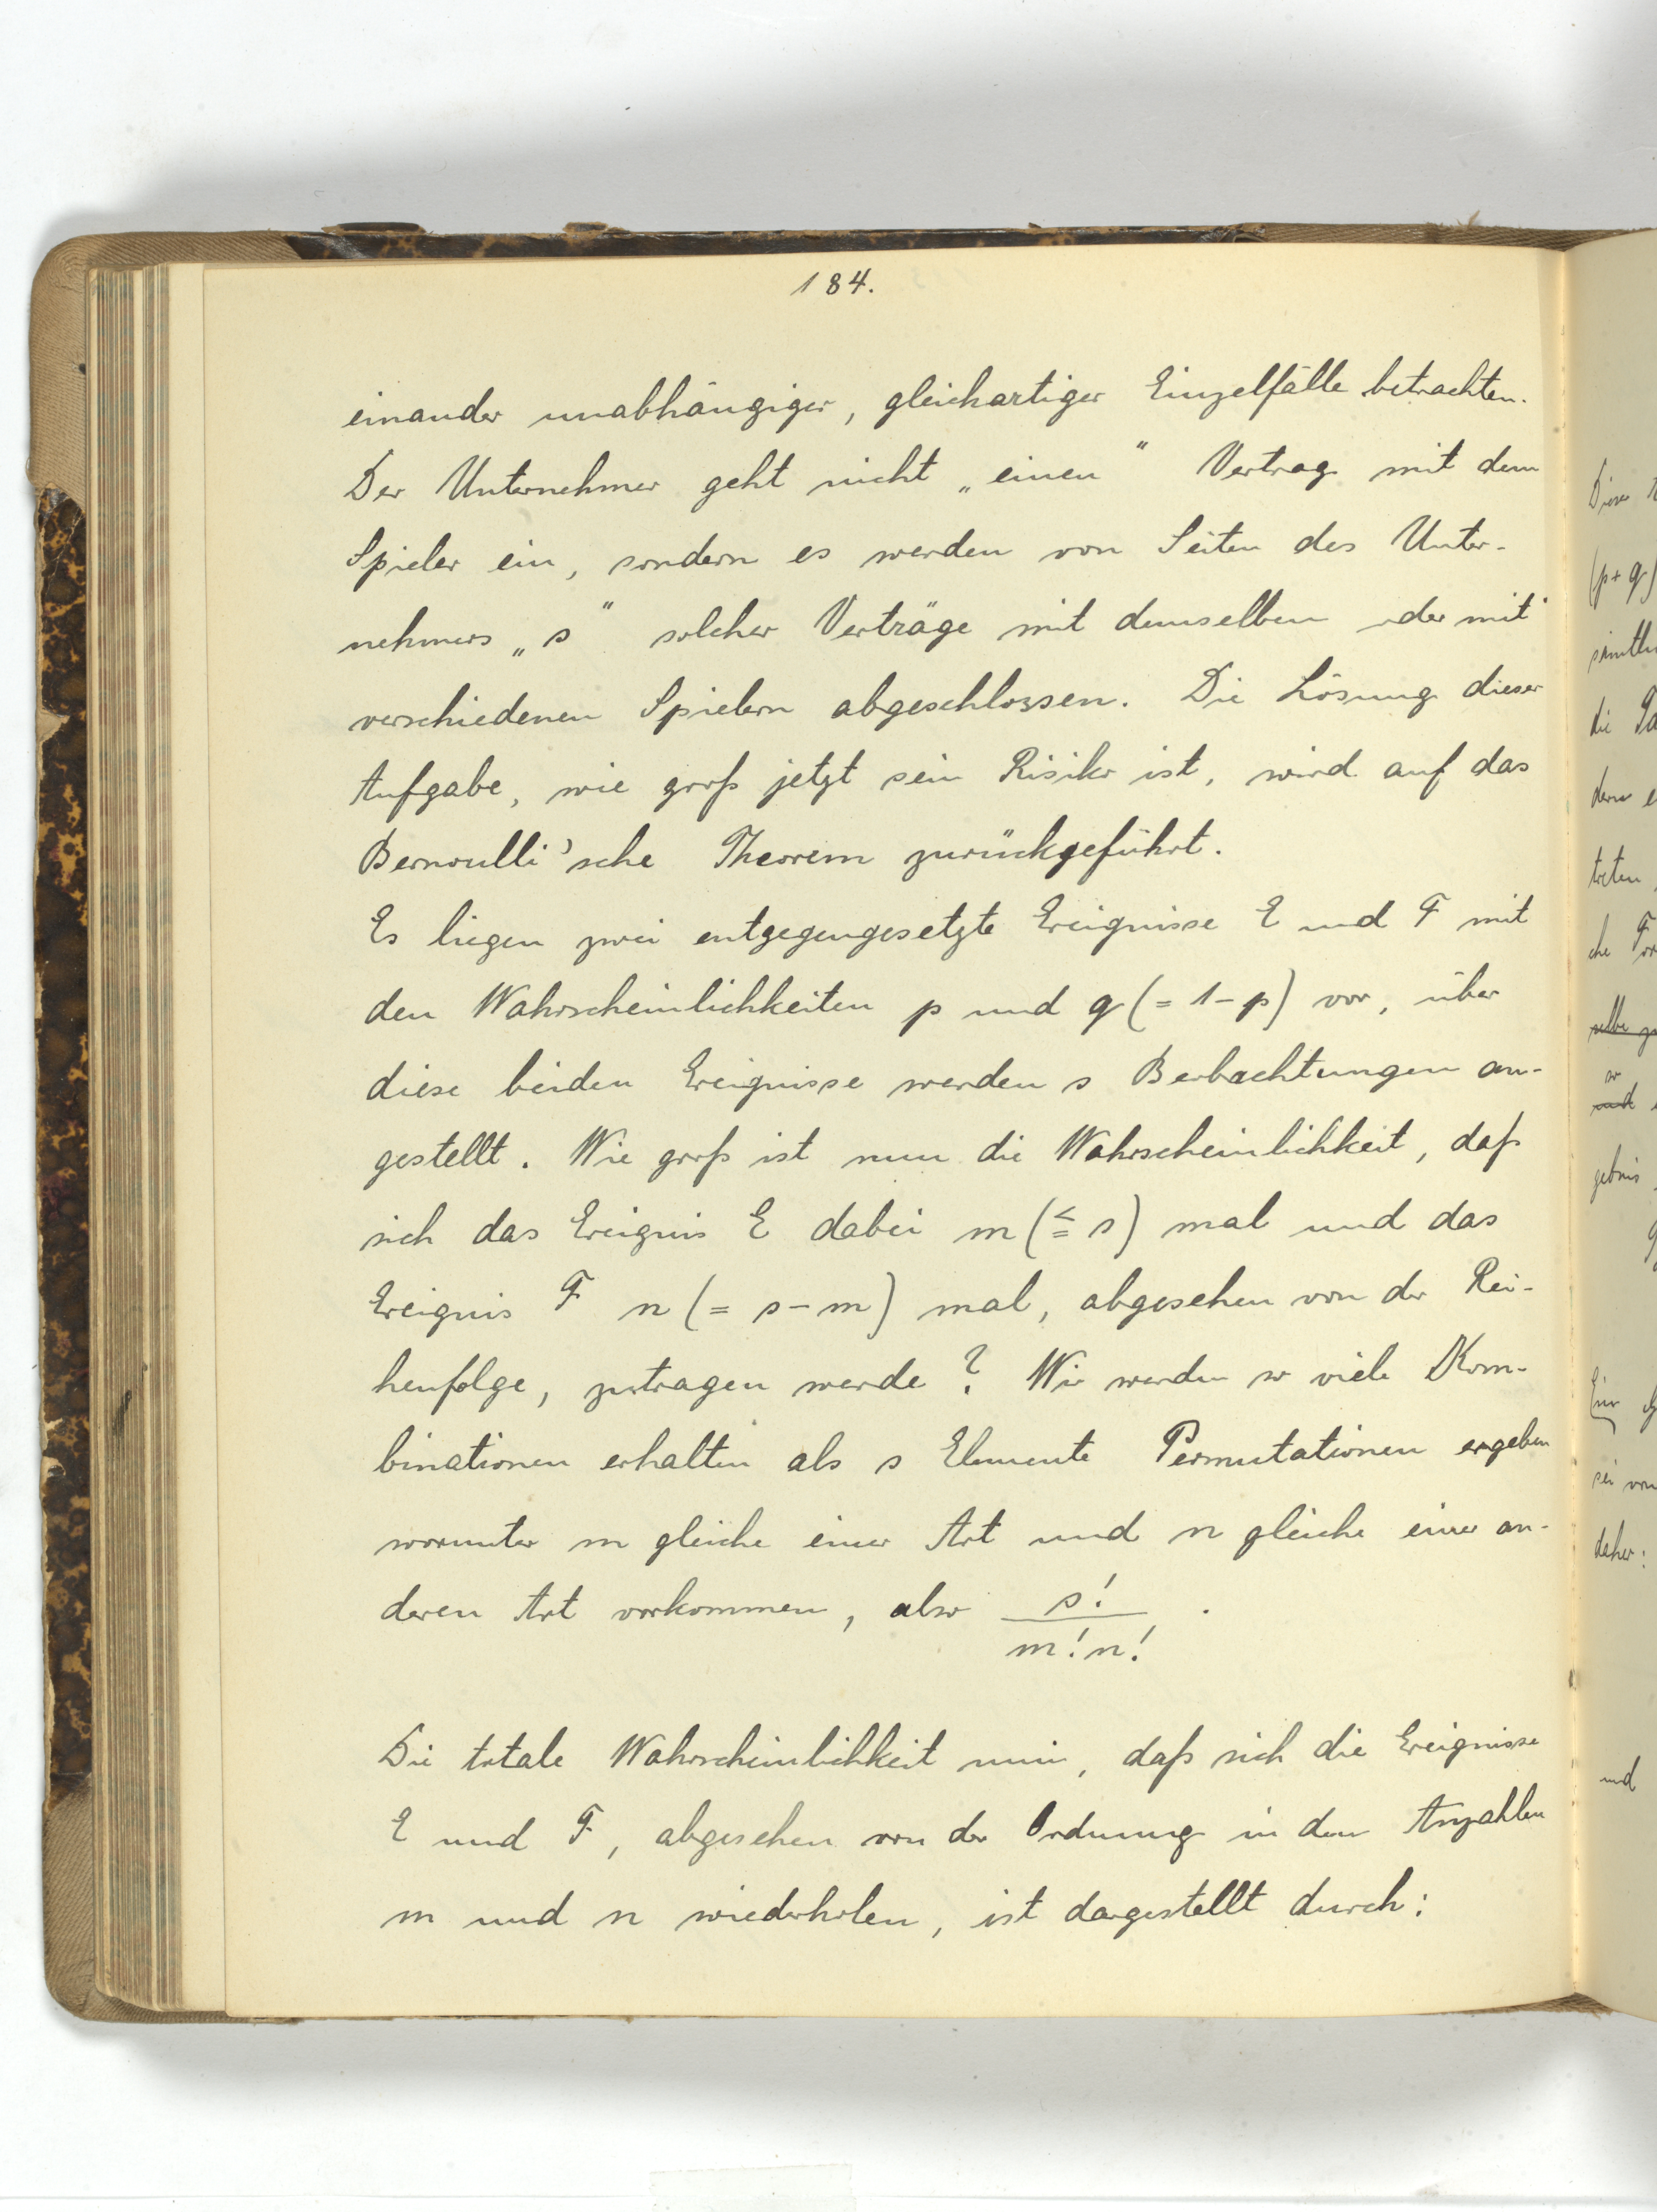 184.
einander unabhängiger, gleichartiger Einzelfälle betrachten.
Der Unternehmer geht nicht „einen" Vertrag mit dem
Spieler ein, sondern es werden von Seiten des Unter-
nehmers „s" solcher Verträge mit demselben oder mit
verschiedenen Spielern abgeschlossen. Die Lösung dieser
Aufgabe, wie groß jetzt sein Risiko ist, wird auf das
Bernoulli'sche Theorem zurückgeführt.
Es liegen zwei entgegengesetzte Ereignisse E und F mit
den Wahrscheinlichkeiten p und q (= 1 - p) vor, über
diese beiden Ereignisse werden s Beobachtungen an-
gestellt. Wie groß ist nun die Wahrscheinlichkeit, daß
sich das Ereignis E dabei m (≦ s) mal und das
Ereignis F n (= s - m) mal, abgesehen von der Rei-
henfolge, zutragen werde? Wir werden so viele Kom-
binationen erhalten als s Elemente Permutationen ergeben
worunter m gleiche einer Art und n gleiche einer an-
deren Art vorkommen, also s! / m! n! .
Die totale Wahrscheinlichkeit nun, daß sich die Ereignisse
E und F, abgesehen von der Ordnung in den Anzahlen
m und n wiederholen, ist dargestellt durch:
(p+q)
die
treten
che
und
gebnis
sei von
daher:
und